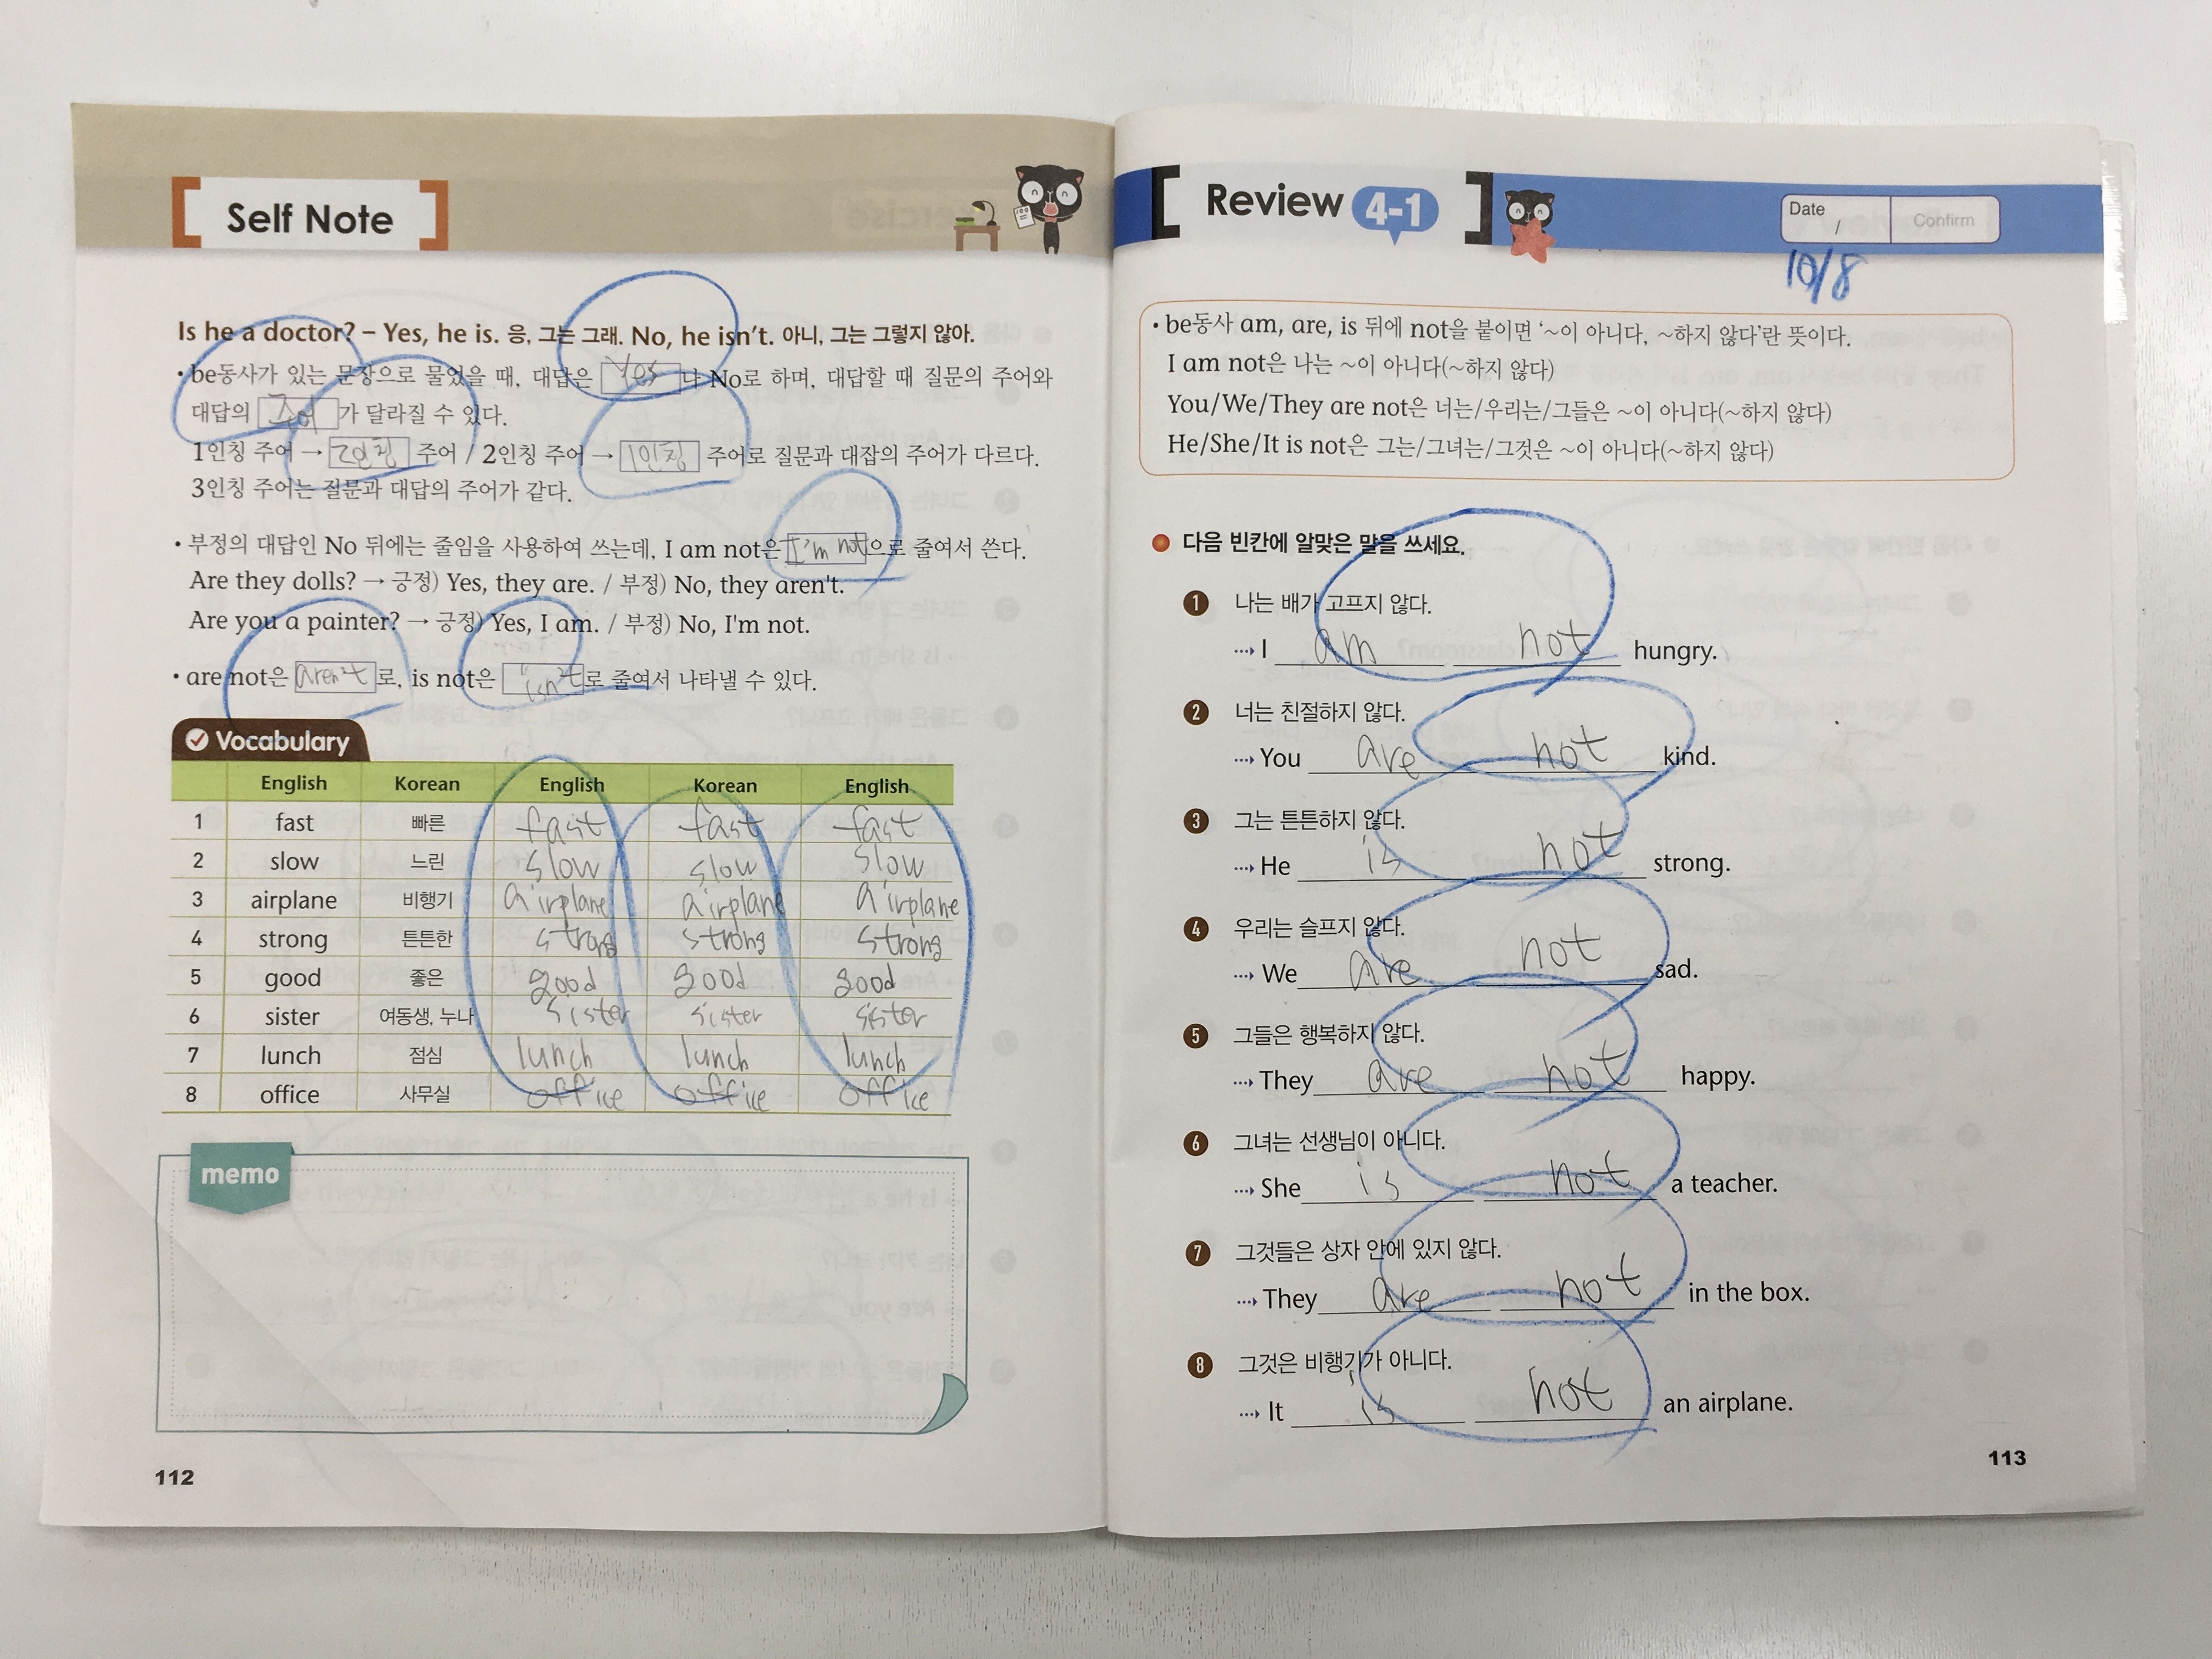 Self Note
Is he a doctor? – Yes, he is. 응, 그는 그래. No, he isn't. 아니, 그는 그렇지 않아.
• be동사가 있는 문장으로 물었을 때, 대답은 Yes 나 No로 하며, 대답할 때 질문의 주어와
대답의 주어 가 달라질 수 있다.
1인칭 주어 → 2인칭 주어 / 2인칭 주어 → 1인칭 주어로 질문과 대잡의 주어가 다르다.
3인칭 주어는 질문과 대답의 주어가 같다.
• 부정의 대답인 No 뒤에는 줄임을 사용하여 쓰는데, I am not은 I'm not 으로 줄여서 쓴다.
Are they dolls? → 긍정) Yes, they are. / 부정) No, they aren't.
Are you a painter? → 긍정) Yes, I am. / 부정) No, I'm not.
• are not은 aren't 로, is not은 isn't 로 줄여서 나타낼 수 있다.
Vocabulary
English Korean English Korean English
1 fast 빠른 fast fast fast
2 slow 느린 slow slow slow
3 airplane 비행기 airplane airplane airplane
4 strong 튼튼한 strong strong strong
5 good 좋은 good good good
6 sister 여동생, 누나 sister sister sister
7 lunch 점심 lunch lunch lunch
8 office 사무실 office office office
memo
112
Review 4-1
Date / Confirm
10/8
• be동사 am, are, is 뒤에 not을 붙이면 '~이 아니다, ~하지 않다'란 뜻이다.
I am not은 나는 ~이 아니다(~하지 않다)
You/We/They are not은 너는/우리는/그들은 ~이 아니다(~하지 않다)
He/She/It is not은 그는/그녀는/그것은 ~이 아니다(~하지 않다)
다음 빈칸에 알맞은 말을 쓰세요.
1 나는 배가 고프지 않다.
I am not hungry.
2 너는 친절하지 않다.
You are not kind.
3 그는 튼튼하지 않다.
He is not strong.
4 우리는 슬프지 않다.
We are not sad.
5 그들은 행복하지 않다.
They are not happy.
6 그녀는 선생님이 아니다.
She is not a teacher.
7 그것들은 상자 안에 있지 않다.
They are not in the box.
8 그것은 비행기가 아니다.
It is not an airplane.
113